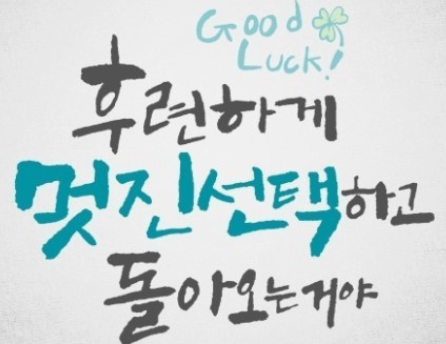 Good
Luck!
후련하게
멋진선택하고
돌아오는거야